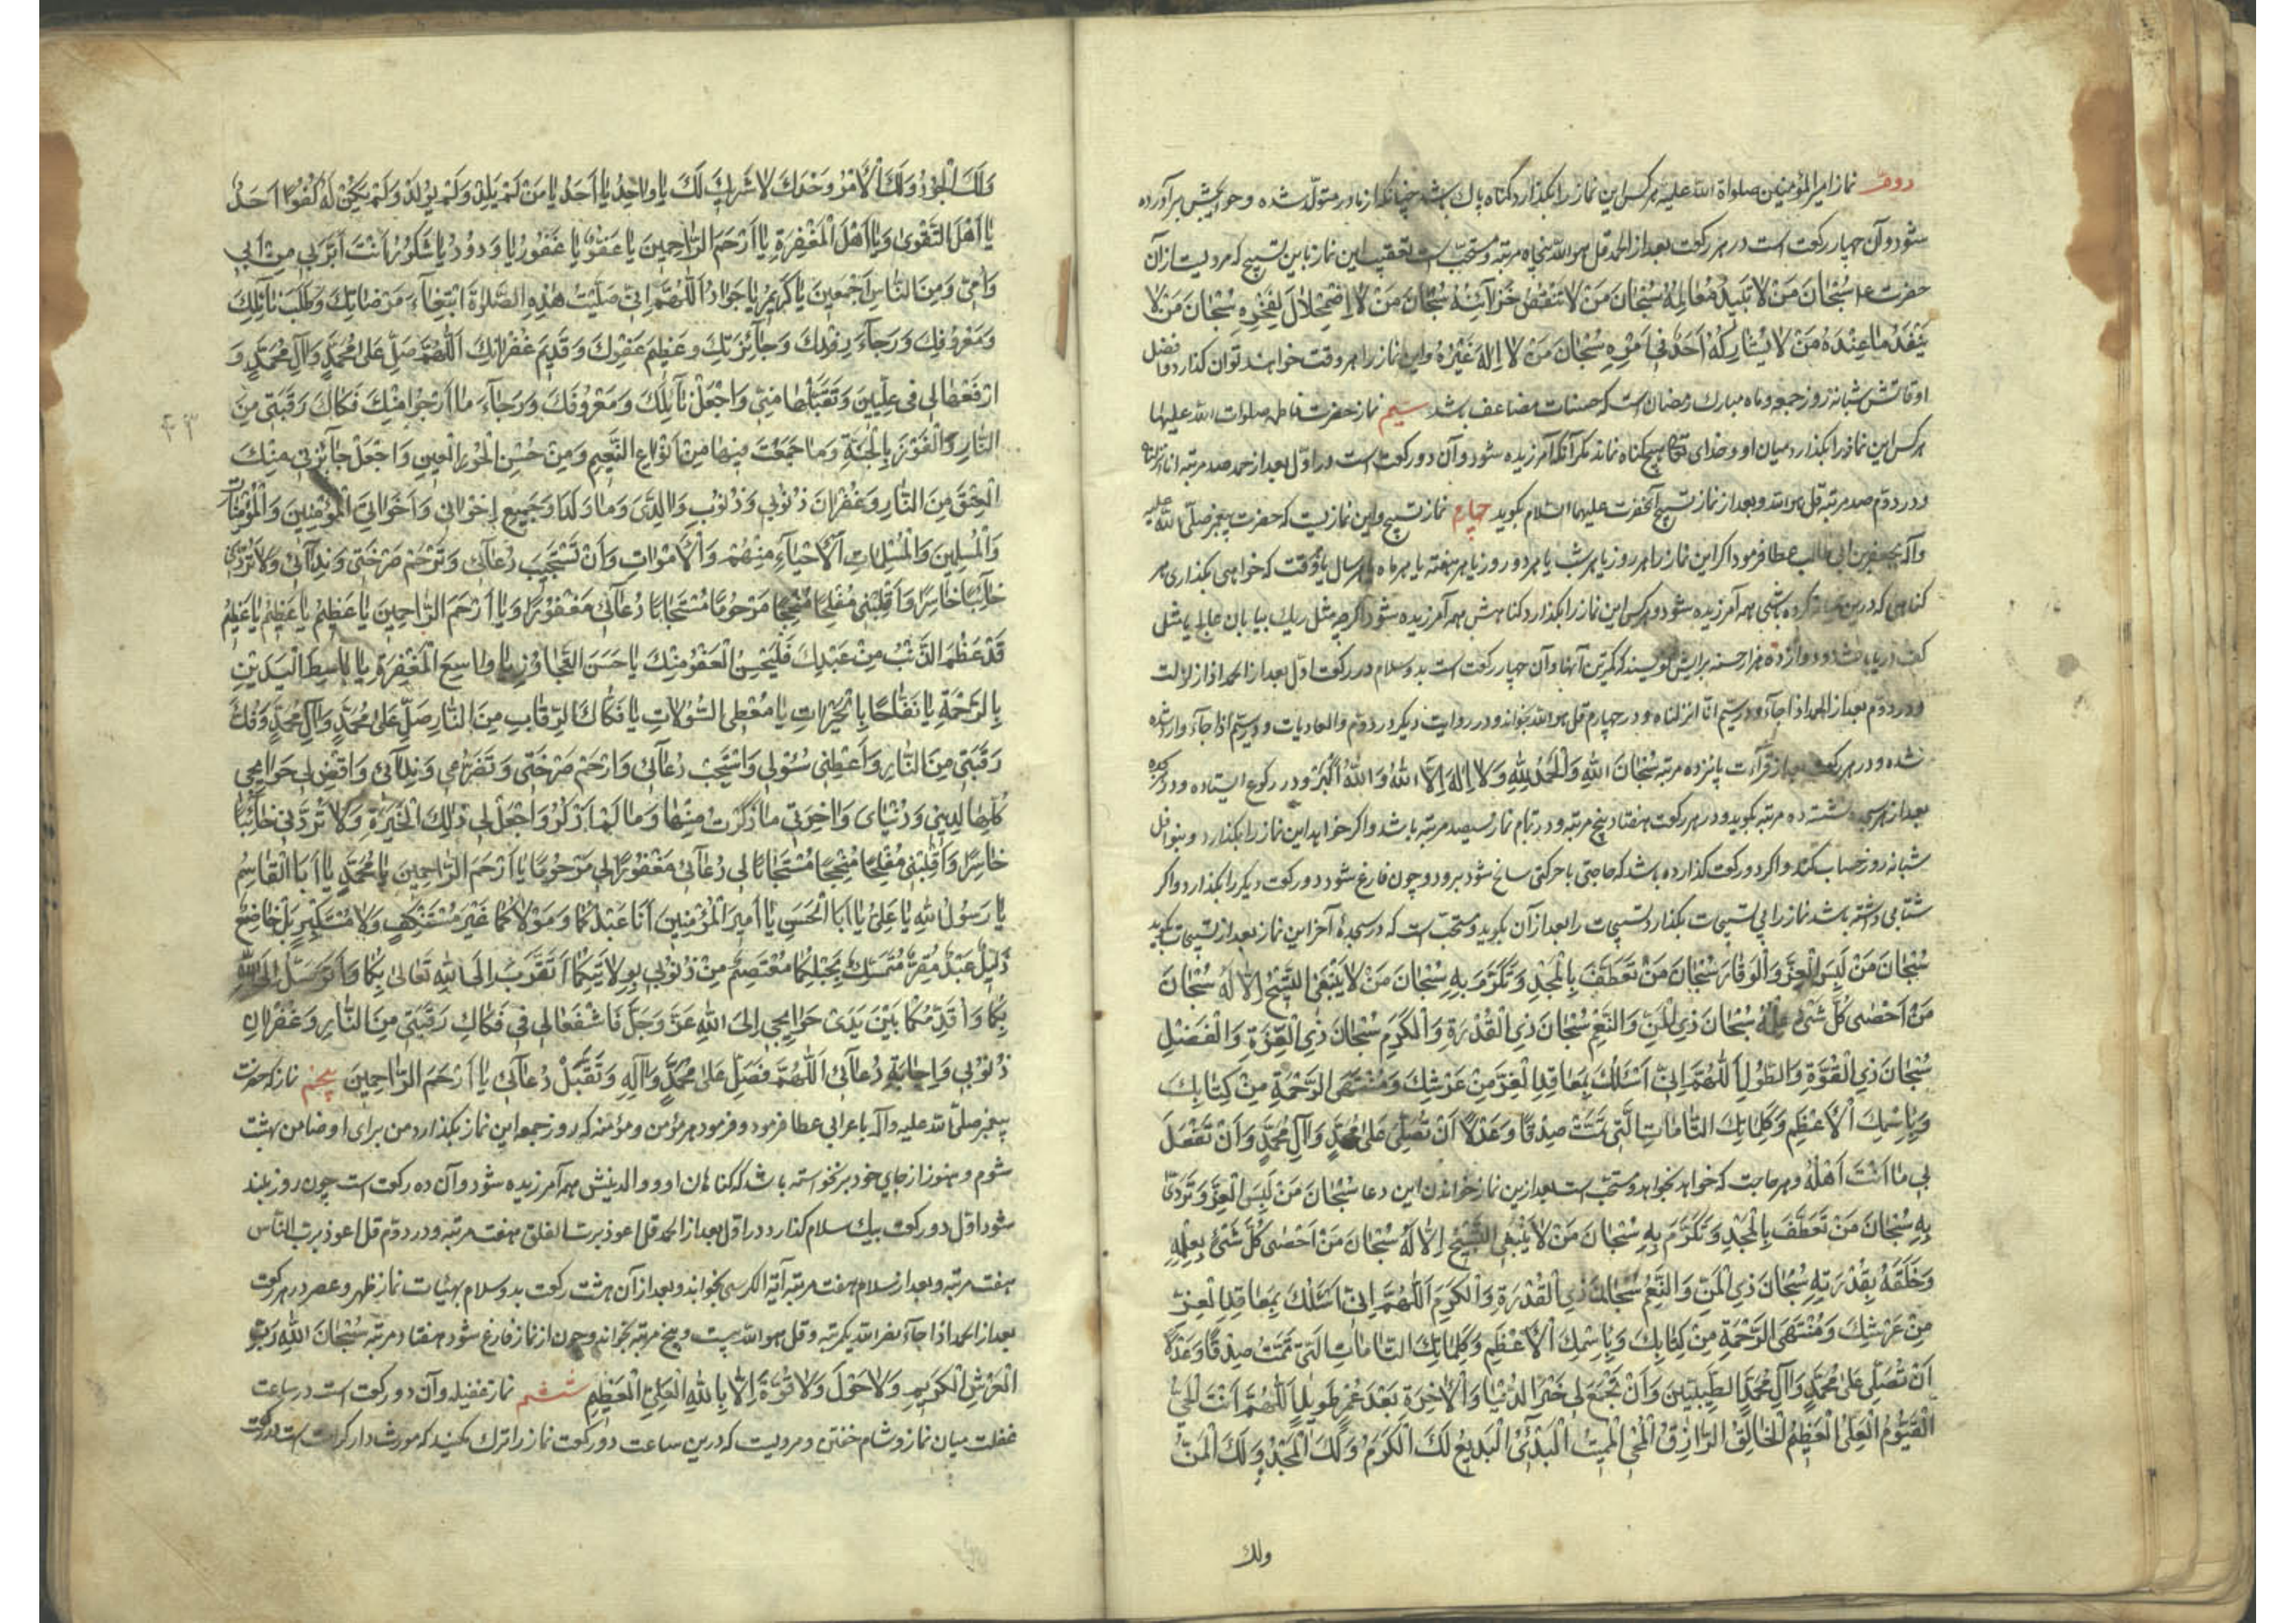 دوم نماز امیرالمؤمنین صلواة الله علیه هرکس این نماز را بکذارد از کناه پاک باشد چنانکه از مادر متولد شده و حوایجش برآورده
شود و آن چهار رکعت است در هر رکعت بعد از الحمد قل هو الله پنجاه مرتبه و مستحب است تعقیب این نماز باین تسبیح که مرویست از آن
حضرت ع سُبْحانَ مَنْ لا تَبیدُ مَعالِمُهُ سُبْحانَ مَنْ لا تَنْقُصُ خَزآئِنُهُ سُبْحانَ مَنْ لا اضْمِحْلالَ لِفَخْرِهِ سُبْحانَ مَنْ لا
یَنْفَدُ ما عِنْدَهُ مَنْ لا یُشارِکُهُ اَحَدٌ فی اَمْرِهِ سُبْحانَ مَنْ لا اِلهَ غَیْرُهُ و این نماز را هر وقت خواهند توان کذارد و افضل
اوقاتش شبانه روز جمعه و ماه مبارک رمضان است که حسنات مضاعف باشد سیم نماز حضرت فاطمه صلوات الله علیها
هرکس این نماز را بکذارد میان او و خدای تعالی هیچ کناه نماند مکر آنکه آمرزیده شود و آن دو رکعت است در اول بعد از حمد صد مرتبه انا انزلناه
و در دوم صد مرتبه قل هو الله و بعد از نماز تسبیح آنحضرت علیهما السلام بکوید چهارم نماز تسبیح و این نمازیست که حضرت پیغمبر صلی الله علیه
وآله بجعفر بن ابی طالب عطا فرمود اکر این نماز را هر روز یا هر شب یا هر دو روز یا هر هفته یا هر ماه یا هر سال یا هر وقت که خواهی بکذاری هر
کناهی که درین میانه کرده باشی همه آمرزیده شود و هرکس این نماز را بکذارد کناهش همه آمرزیده شود اکرچه مثل ریک بیابان عالج یا مثل
کف دریا باشد و دوازده هزار حسنه برایش نویسند که کمترین آنها و آن چهار رکعت است بدو سلام در رکعت اول بعد از الحمد اذا زلزلت
و در دوم بعد از الحمد اذا جآء و در سیم انا انزلناه و در چهارم قل هو الله بخواند و در روایت دیکر در دوم والعادیات و در سیم اذا جآء وارد شده
شده و در هر رکعت بعد از قرآءت پانزده مرتبه سُبْحانَ اللهِ وَالْحَمْدُ لِلّهِ وَلا اِلهَ اِلّا اللهُ وَاللهُ اَکْبَرُ و در رکوع ایستاده و در سجده
بعد از هر سجده نشسته ده مرتبه بکوید و در هر رکعت هفتاد و پنج مرتبه و در تمام نماز سیصد مرتبه باشد و اکر خواهد این نماز را بکذارد و بنوافل
شبانه روز حساب کند و اکر دو رکعت کذارده باشد که حاجتی یا حرکتی سانح شود برود و چون فارغ شود دو رکعت دیکر را بکذارد و اکر
شتابی داشته باشد نماز را بی تسبیحات بکذارد و تسبیحات را بعد از آن بکوید و مستحب است که در سجدهٔ آخر این نماز بعد از تسبیحات بکوید
سُبْحانَ مَنْ لَبِسَ الْعِزَّ وَالْوَقارَ سُبْحانَ مَنْ تَعَطَّفَ بِالْمَجْدِ وَتَکَرَّمَ بِهِ سُبْحانَ مَنْ لا یَنْبَغِی التَّسْبیحُ اِلّا لَهُ سُبْحانَ
مَنْ اَحْصى کُلَّ شَیْءٍ عِلْمُهُ سُبْحانَ ذِی الْمَنِّ وَالنِّعَمِ سُبْحانَ ذِی الْقُدْرَةِ وَالْکَرَمِ سُبْحانَ ذِی الْعِزَّةِ وَالْفَضْلِ
سُبْحانَ ذِی الْقُوَّةِ وَالطَّوْلِ اَللّهُمَّ اِنّی اَسْئَلُکَ بِمَعاقِدِ الْعِزِّ مِنْ عَرْشِکَ وَمُنْتَهَى الرَّحْمَةِ مِنْ کِتابِکَ
وَبِاسْمِکَ الْاَعْظَمِ وَکَلِماتِکَ التّامّاتِ الَّتی تَمَّتْ صِدْقًا وَعَدْلًا اَنْ تُصَلِّیَ عَلى مُحَمَّدٍ وَآلِ مُحَمَّدٍ وَاَنْ تَفْعَلَ
بی ما اَنْتَ اَهْلُهُ و هر حاجت که خواهد بخواهد و مستحب است بعد ازین نماز خواندن این دعا سُبْحانَ مَنْ لَبِسَ الْعِزَّ وَتَرَدّى
بِهِ سُبْحانَ مَنْ تَعَطَّفَ بِالْمَجْدِ وَتَکَرَّمَ بِهِ سُبْحانَ مَنْ لا یَنْبَغِی التَّسْبیحُ اِلّا لَهُ سُبْحانَ مَنْ اَحْصى کُلَّ شَیْءٍ بِعِلْمِهِ
وَخَلَقَهُ بِقُدْرَتِهِ سُبْحانَ ذِی الْمَنِّ وَالنِّعَمِ سُبْحانَ ذِی الْقُدْرَةِ وَالْکَرَمِ اَللّهُمَّ اِنّی اَسْئَلُکَ بِمَعاقِدِ الْعِزِّ
مِنْ عَرْشِکَ وَمُنْتَهَى الرَّحْمَةِ مِنْ کِتابِکَ وَبِاسْمِکَ الْاَعْظَمِ وَکَلِماتِکَ التّامّاتِ الَّتی تَمَّتْ صِدْقًا وَعَدْلًا
اَنْ تُصَلِّیَ عَلى مُحَمَّدٍ وَآلِ مُحَمَّدٍ الطَّیِّبینَ وَاَنْ تَجْمَعَ لی خَیْرَ الدُّنْیا وَالْاخِرَةِ بَعْدَ عُمْرٍ طَویلٍ اَللّهُمَّ اَنْتَ الْحَیُّ
الْقَیُّومُ الْعَلِیُّ الْعَظیمُ الْخالِقُ الرّازِقُ الْمُحْیِی الْمُمیتُ الْبَدیءُ الْبَدیعُ لَکَ الْکَرَمُ وَلَکَ الْمَجْدُ وَلَکَ الْمَنُّ
ولك
وَلَکَ الْجُودُ وَلَکَ الْاَمْرُ وَحْدَکَ لا شَریکَ لَکَ یا واحِدُ یا اَحَدُ یا مَنْ لَمْ یَلِدْ وَلَمْ یُولَدْ وَلَمْ یَکُنْ لَهُ کُفُوًا اَحَدٌ
یا اَهْلَ التَّقْوى وَیا اَهْلَ الْمَغْفِرَةِ یا اَرْحَمَ الرّاحِمینَ یا عَفُوُّ یا غَفُورُ یا وَدُودُ یا شَکُورُ اَنْتَ اَبَرُّ بی مِنْ اَبی
وَاُمّی وَمِنَ النّاسِ اَجْمَعینَ یا کَریمُ یا جَوادُ اَللّهُمَّ اِنّی صَلَّیْتُ هذِهِ الصَّلوةَ ابْتِغآءَ مَرْضاتِکَ وَطَلَبَ نآئِلِکَ
وَمَعْرُوفِکَ وَرَجآءَ رِفْدِکَ وَجآئِزَتِکَ وَعَظیمِ عَفْوِکَ وَقَدیمِ غُفْرانِکَ اَللّهُمَّ صَلِّ عَلى مُحَمَّدٍ وَآلِ مُحَمَّدٍ وَ
ارْفَعْها لی فی عِلِّیّینَ وَتَقَبَّلْها مِنّی وَاجْعَلْ نآئِلَکَ وَمَعْرُوفَکَ وَرَجآءَ ما اَرْجُو مِنْکَ فَکاکَ رَقَبَتی مِنَ
النّارِ وَالْفَوْزَ بِالْجَنَّةِ وَما جَمَعْتَ فیها مِنْ اَنْواعِ النَّعیمِ وَمِنْ حُسْنِ الْحُورِ الْعینِ وَاجْعَلْ جآئِزَتی مِنْکَ
الْعِتْقَ مِنَ النّارِ وَغُفْرانَ ذُنُوبی وَذُنُوبِ والِدَیَّ وَما وَلَدا وَجَمیعِ اِخْوانی وَاَخَواتِیَ الْمُؤْمِنینَ وَالْمُؤْمِناتِ
وَالْمُسْلِمینَ وَالْمُسْلِماتِ الْاَحْیآءِ مِنْهُمْ وَالْاَمْواتِ وَاَنْ تَسْتَجیبَ دُعآئی وَتَرْحَمَ صَرْخَتی وَنِدآئی وَلا تَرُدَّنی
خآئِبًا خاسِرًا وَاَقْلِبْنی مُفْلِحًا مُنْجِحًا مَرْحُومًا مُسْتَجابًا دُعآئی مَغْفُورًا وَیا اَرْحَمَ الرّاحِمینَ یا عَظیمُ یا عَظیمُ یا عَظیمُ
قَدْ عَظُمَ الذَّنْبُ مِنْ عَبْدِکَ فَلْیَحْسُنِ الْعَفْوُ مِنْکَ یا حَسَنَ التَّجاوُزِ یا واسِعَ الْمَغْفِرَةِ یا باسِطَ الْیَدَیْنِ
بِالرَّحْمَةِ یا نَفّاحًا بِالْخَیْراتِ یا مُعْطِیَ السُّؤلاتِ یا فَکّاکَ الرِّقابِ مِنَ النّارِ صَلِّ عَلى مُحَمَّدٍ وَآلِ مُحَمَّدٍ وَفُکَّ
رَقَبَتی مِنَ النّارِ وَاَعْطِنی سُؤْلی وَاسْتَجِبْ دُعآئی وَارْحَمْ صَرْخَتی وَتَضَرُّعی وَنِدآئی وَاقْضِ لی حَوایِجی
کُلَّها لِدینی وَدُنْیایَ وَآخِرَتی ما ذَکَرْتُ مِنْها وَما لَمْ اَذْکُرْ وَاجْعَلْ لی فی ذلِکَ الْخِیَرَةَ وَلا تَرُدَّنی خآئِبًا
خاسِرًا وَاَقْلِبْنی مُفْلِحًا مُنْجِحًا مُسْتَجابًا لی دُعآئی مَغْفُورًا لی مَرْحُومًا یا اَرْحَمَ الرّاحِمینَ یا مُحَمَّدُ یا اَبَا الْقاسِمِ
یا رَسُولَ اللهِ یا عَلِیُّ یا اَبَا الْحَسَنِ یا اَمیرَ الْمُؤْمِنینَ اَنَا عَبْدُکُما وَمَوْلاکُما غَیْرَ مُسْتَنْکِفٍ وَلا مُسْتَکْبِرٍ بَلْ خاضِعٌ
ذَلیلٌ عَبْدٌ مُقِرٌّ مُتَمَسِّکٌ بِحَبْلِکُما مُعْتَصِمٌ مِنْ ذُنُوبی بِوِلایَتِکُما اَتَقَرَّبُ اِلَى اللهِ تَعالى بِکُما وَاَتَوَسَّلُ اِلَى اللهِ
بِکُما وَاُقَدِّمُکُما بَیْنَ یَدَیْ حَوایِجی اِلَى اللهِ عَزَّ وَجَلَّ فَاشْفَعا لی فی فَکاکِ رَقَبَتی مِنَ النّارِ وَغُفْرانِ
ذُنُوبی وَاِجابَةِ دُعآئی اَللّهُمَّ فَصَلِّ عَلى مُحَمَّدٍ وَآلِهِ وَتَقَبَّلْ دُعآئی یا اَرْحَمَ الرّاحِمینَ پنجم نمازیکه حضرت
پیغمبر صلی الله علیه وآله باعرابی عطا فرمود و فرمود هر مؤمن و مؤمنه که روز جمعه این نماز بکذارد من برای او ضامن بهشت
شوم و هنوز از جای خود برنخواسته باشد که کناهان او و والدینش همه آمرزیده شود و آن ده رکعت است چون روز بلند
شود اول دو رکعت بیک سلام کذارد در اول بعد از الحمد قل اعوذ برب الفلق هفت مرتبه و در دوم قل اعوذ برب الناس
هفت مرتبه و بعد از سلام هفت مرتبه آیة الکرسی بخواند و بعد از آن هشت رکعت بدو سلام بهیئات نماز ظهر و عصر در هر رکعت
بعد از الحمد اذا جآء نصر الله یکمرتبه و قل هو الله بیست و پنج مرتبه بخواند و چون از نماز فارغ شود هفتاد مرتبه سُبْحانَ اللهِ رَبِّ
الْعَرْشِ الْکَریمِ وَلا حَوْلَ وَلا قُوَّةَ اِلّا بِاللهِ الْعَلِیِّ الْعَظیمِ ششم نماز غفیله و آن دو رکعت است در ساعت
غفلت میان نماز و شام خفتن و مرویست که درین ساعت دو رکعت نماز را ترک مکنید که مورث دار کرامت است